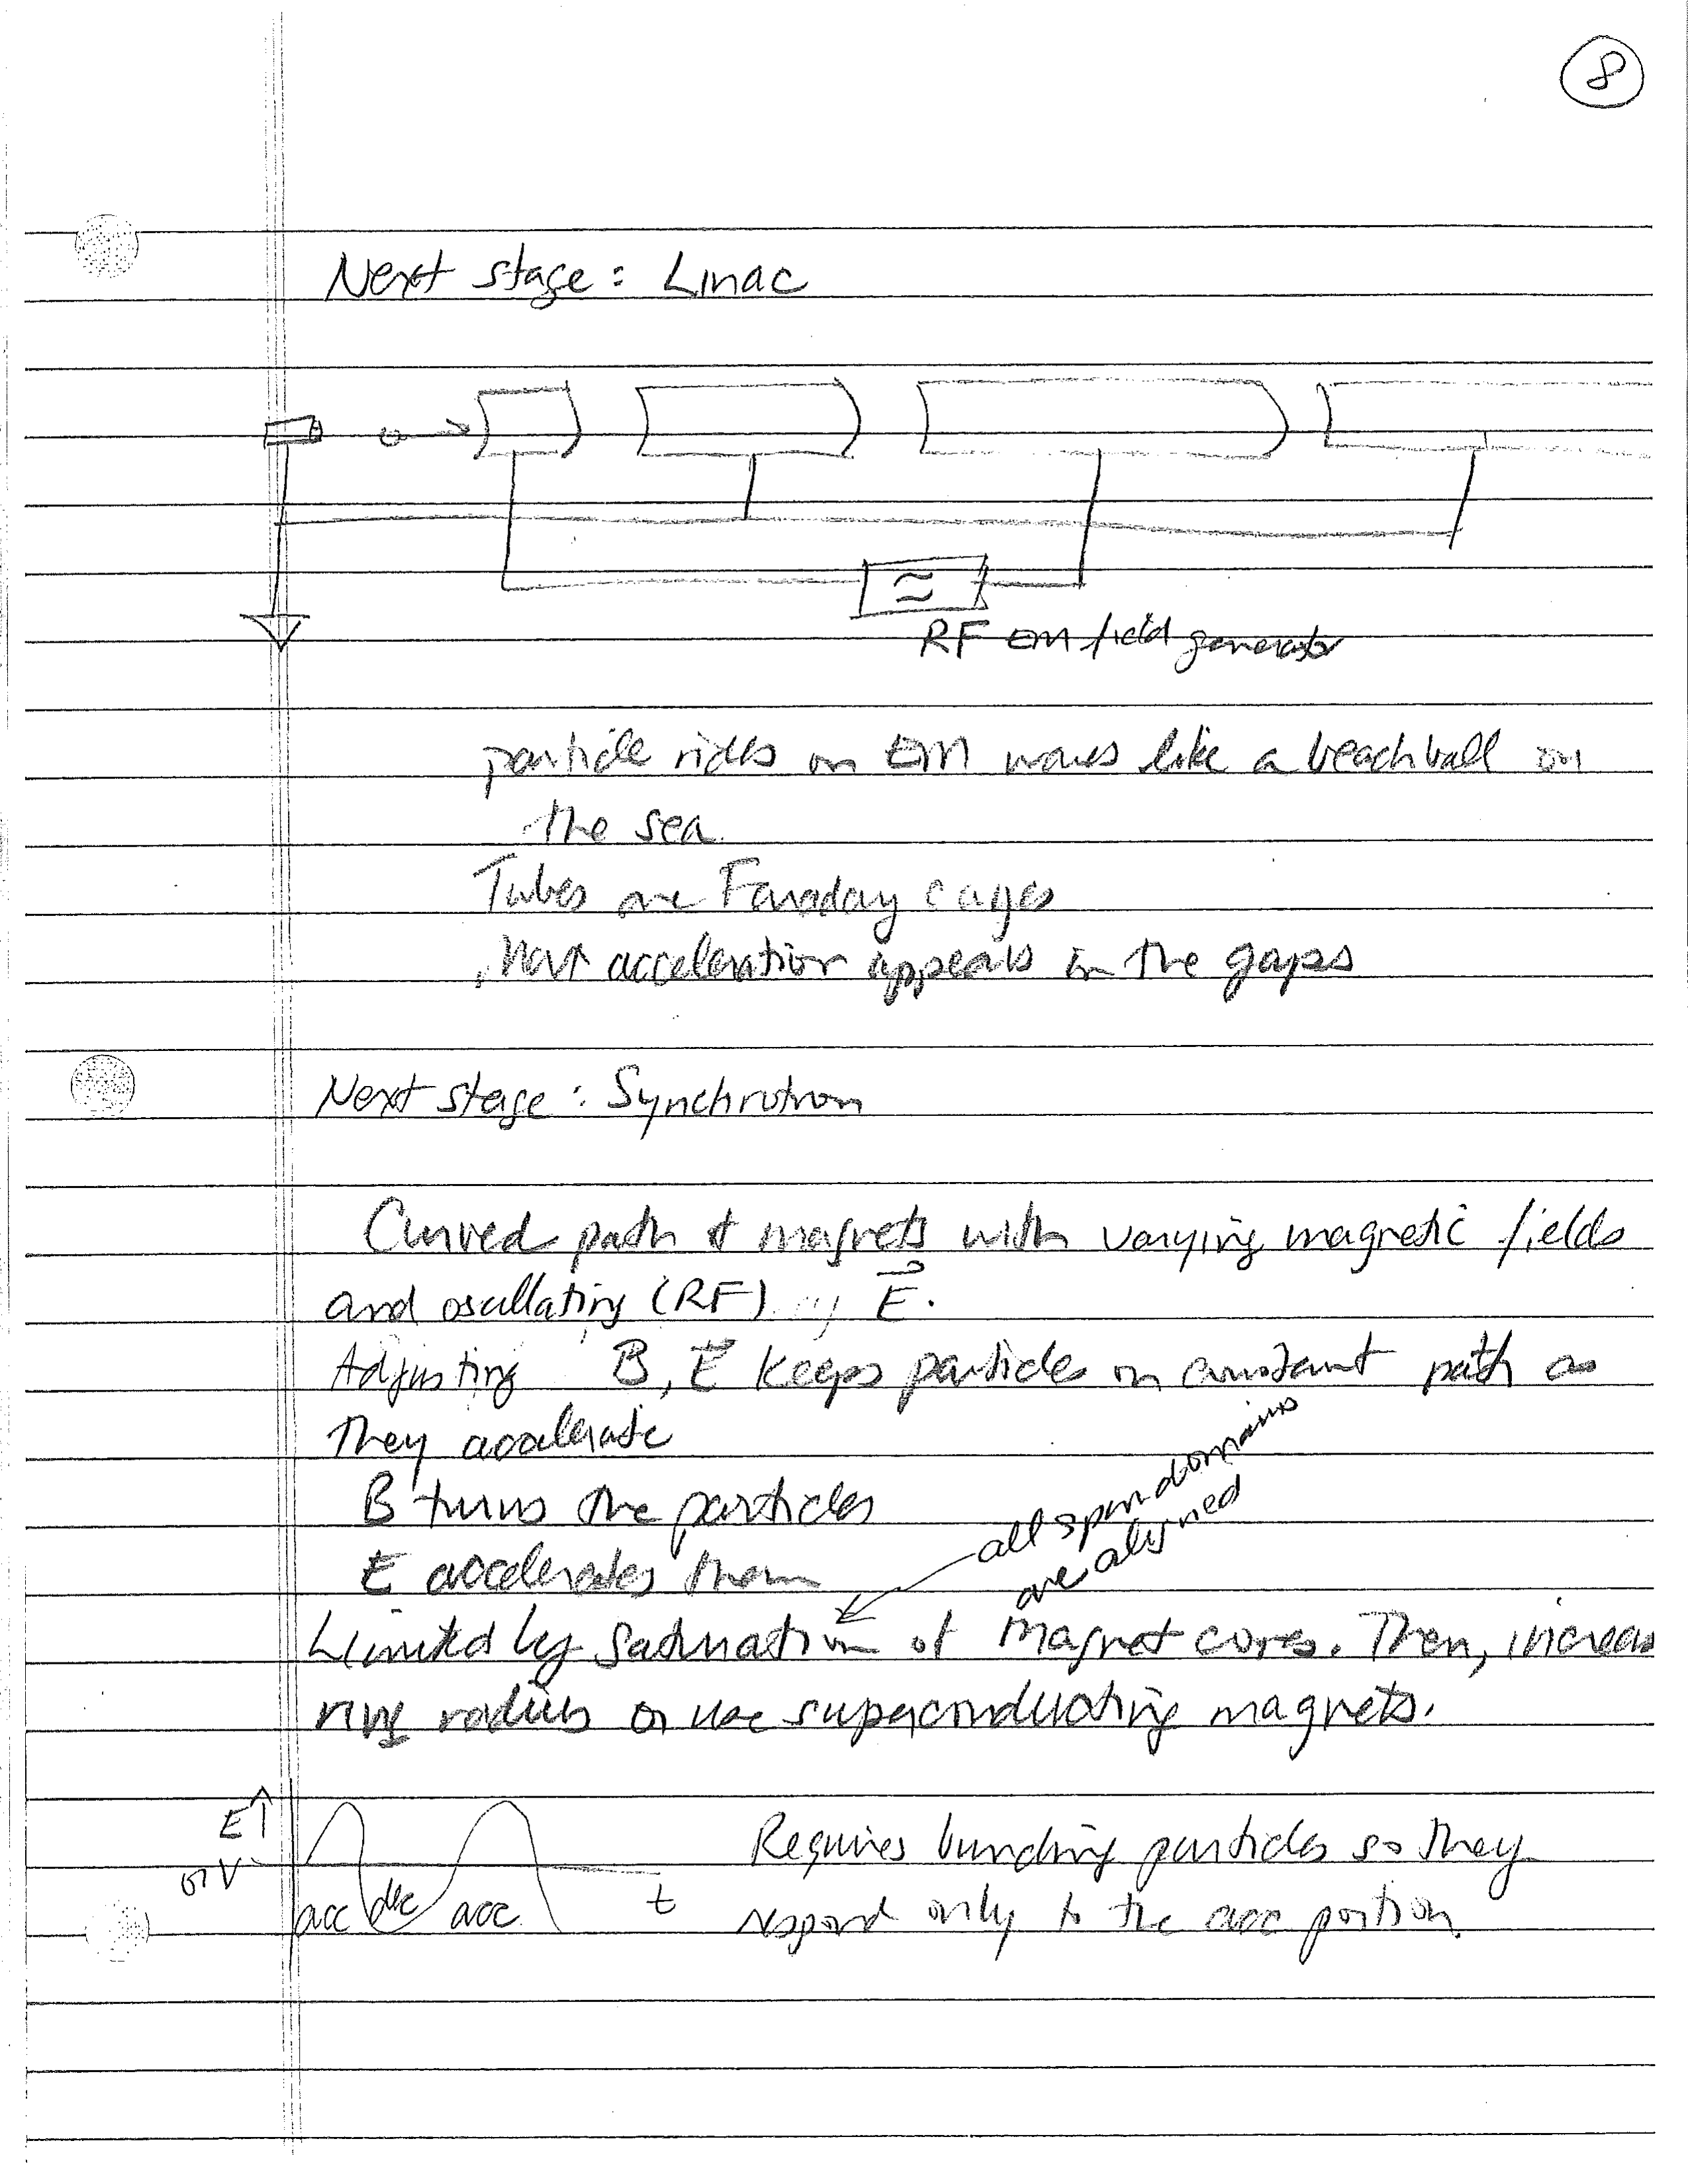 8
Next stage: Linac
RF EM field generator
particle rides on EM waves like a beachball on
the sea.
Tubes are Faraday cages
acceleration appears in the gaps
Next stage: Synchrotron
Curved path & magnets with varying magnetic fields
and oscillating (RF) E⃗.
Adjusting B, E⃗ keeps particles on constant path as
they accelerate
B turns the particles
E accelerates them
all spin domains
are aligned
Limited by saturation of magnet cores. Then, increas
ring radius or use superconducting magnets.
E ↑
or V
acc dec acc t
Requires bunching particles so they
respond only to the acc portion.